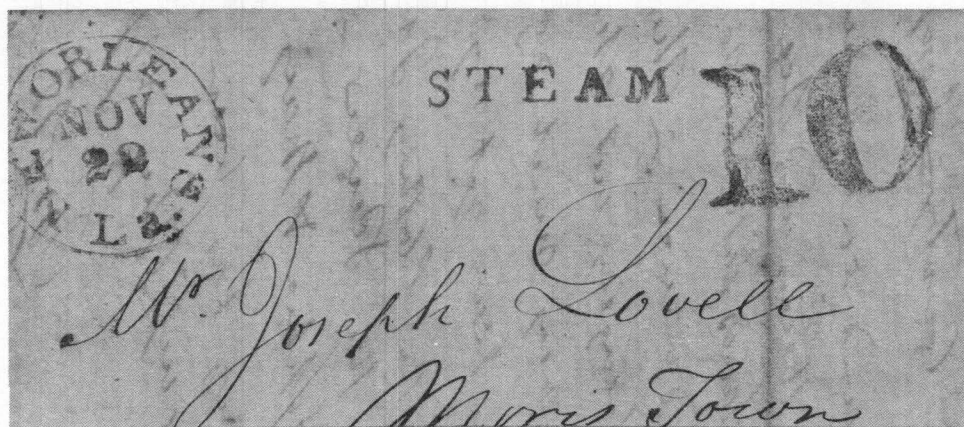 NEW ORLEANS La.
NOV
22
STEAM
10
Mr. Joseph Lovell
Morris Town